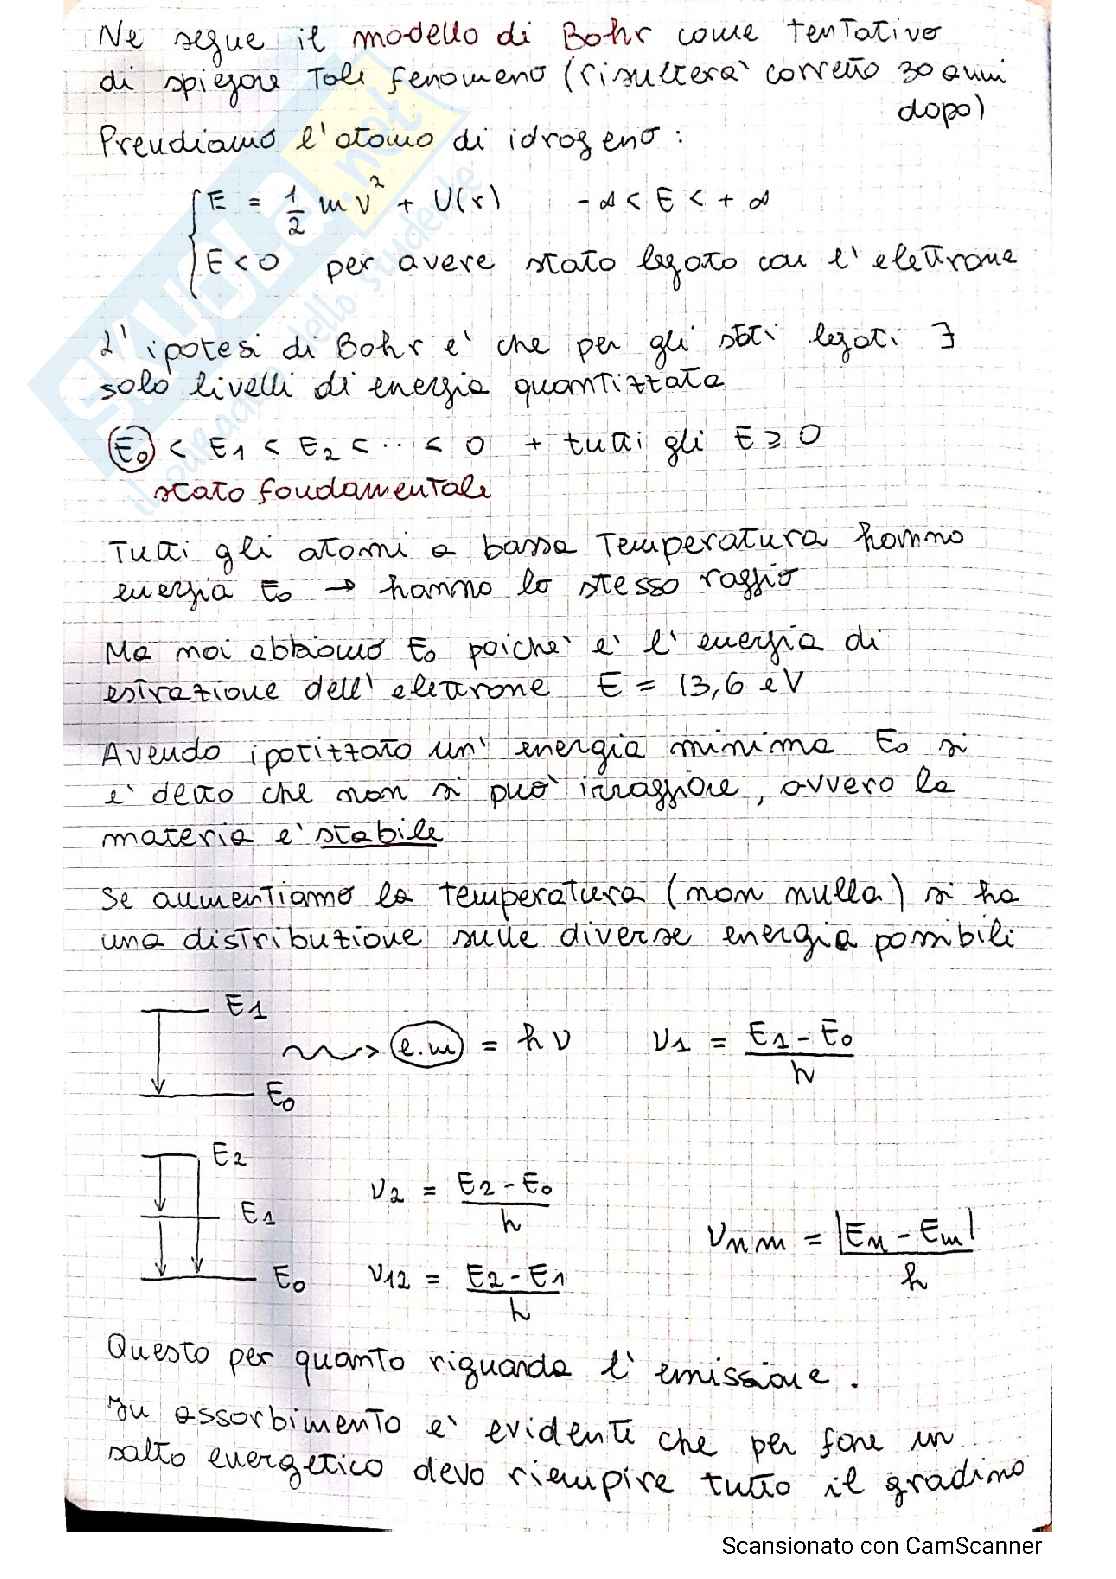 Ne segue il modello di Bohr come tentativo
di spiegare tale fenomeno (risulterà corretto 30 anni
dopo)
Prendiamo l'atomo di idrogeno:
E = 1/2 m v² + U(r)    -∞ < E < +∞
E < 0 per avere stato legato con l'elettrone
L'ipotesi di Bohr è che per gli stati legati ∃
solo livelli di energia quantizzata
E₀ < E₁ < E₂ < ... < 0 + tutti gli E ≥ 0
stato fondamentale
Tutti gli atomi a bassa temperatura hanno
energia E₀ → hanno lo stesso raggio
Ma noi abbiamo E₀ poiché è l'energia di
estrazione dell'elettrone E = 13,6 eV
Avendo ipotizzato un'energia minima E₀ si
è detto che non si può irraggiare, ovvero la
materia è stabile
Se aumentiamo la temperatura (non nulla) si ha
una distribuzione sulle diverse energia possibili
E₁
e.m = hν    ν₁ = (E₁ - E₀)/h
E₀
E₂
ν₂ = (E₂ - E₀)/h
E₁
νₙₘ = |Eₙ - Eₘ|/h
E₀
ν₁₂ = (E₂ - E₁)/h
Questo per quanto riguarda l'emissione.
In assorbimento è evidente che per fare un
salto energetico devo riempire tutto il gradino
Scansionato con CamScanner